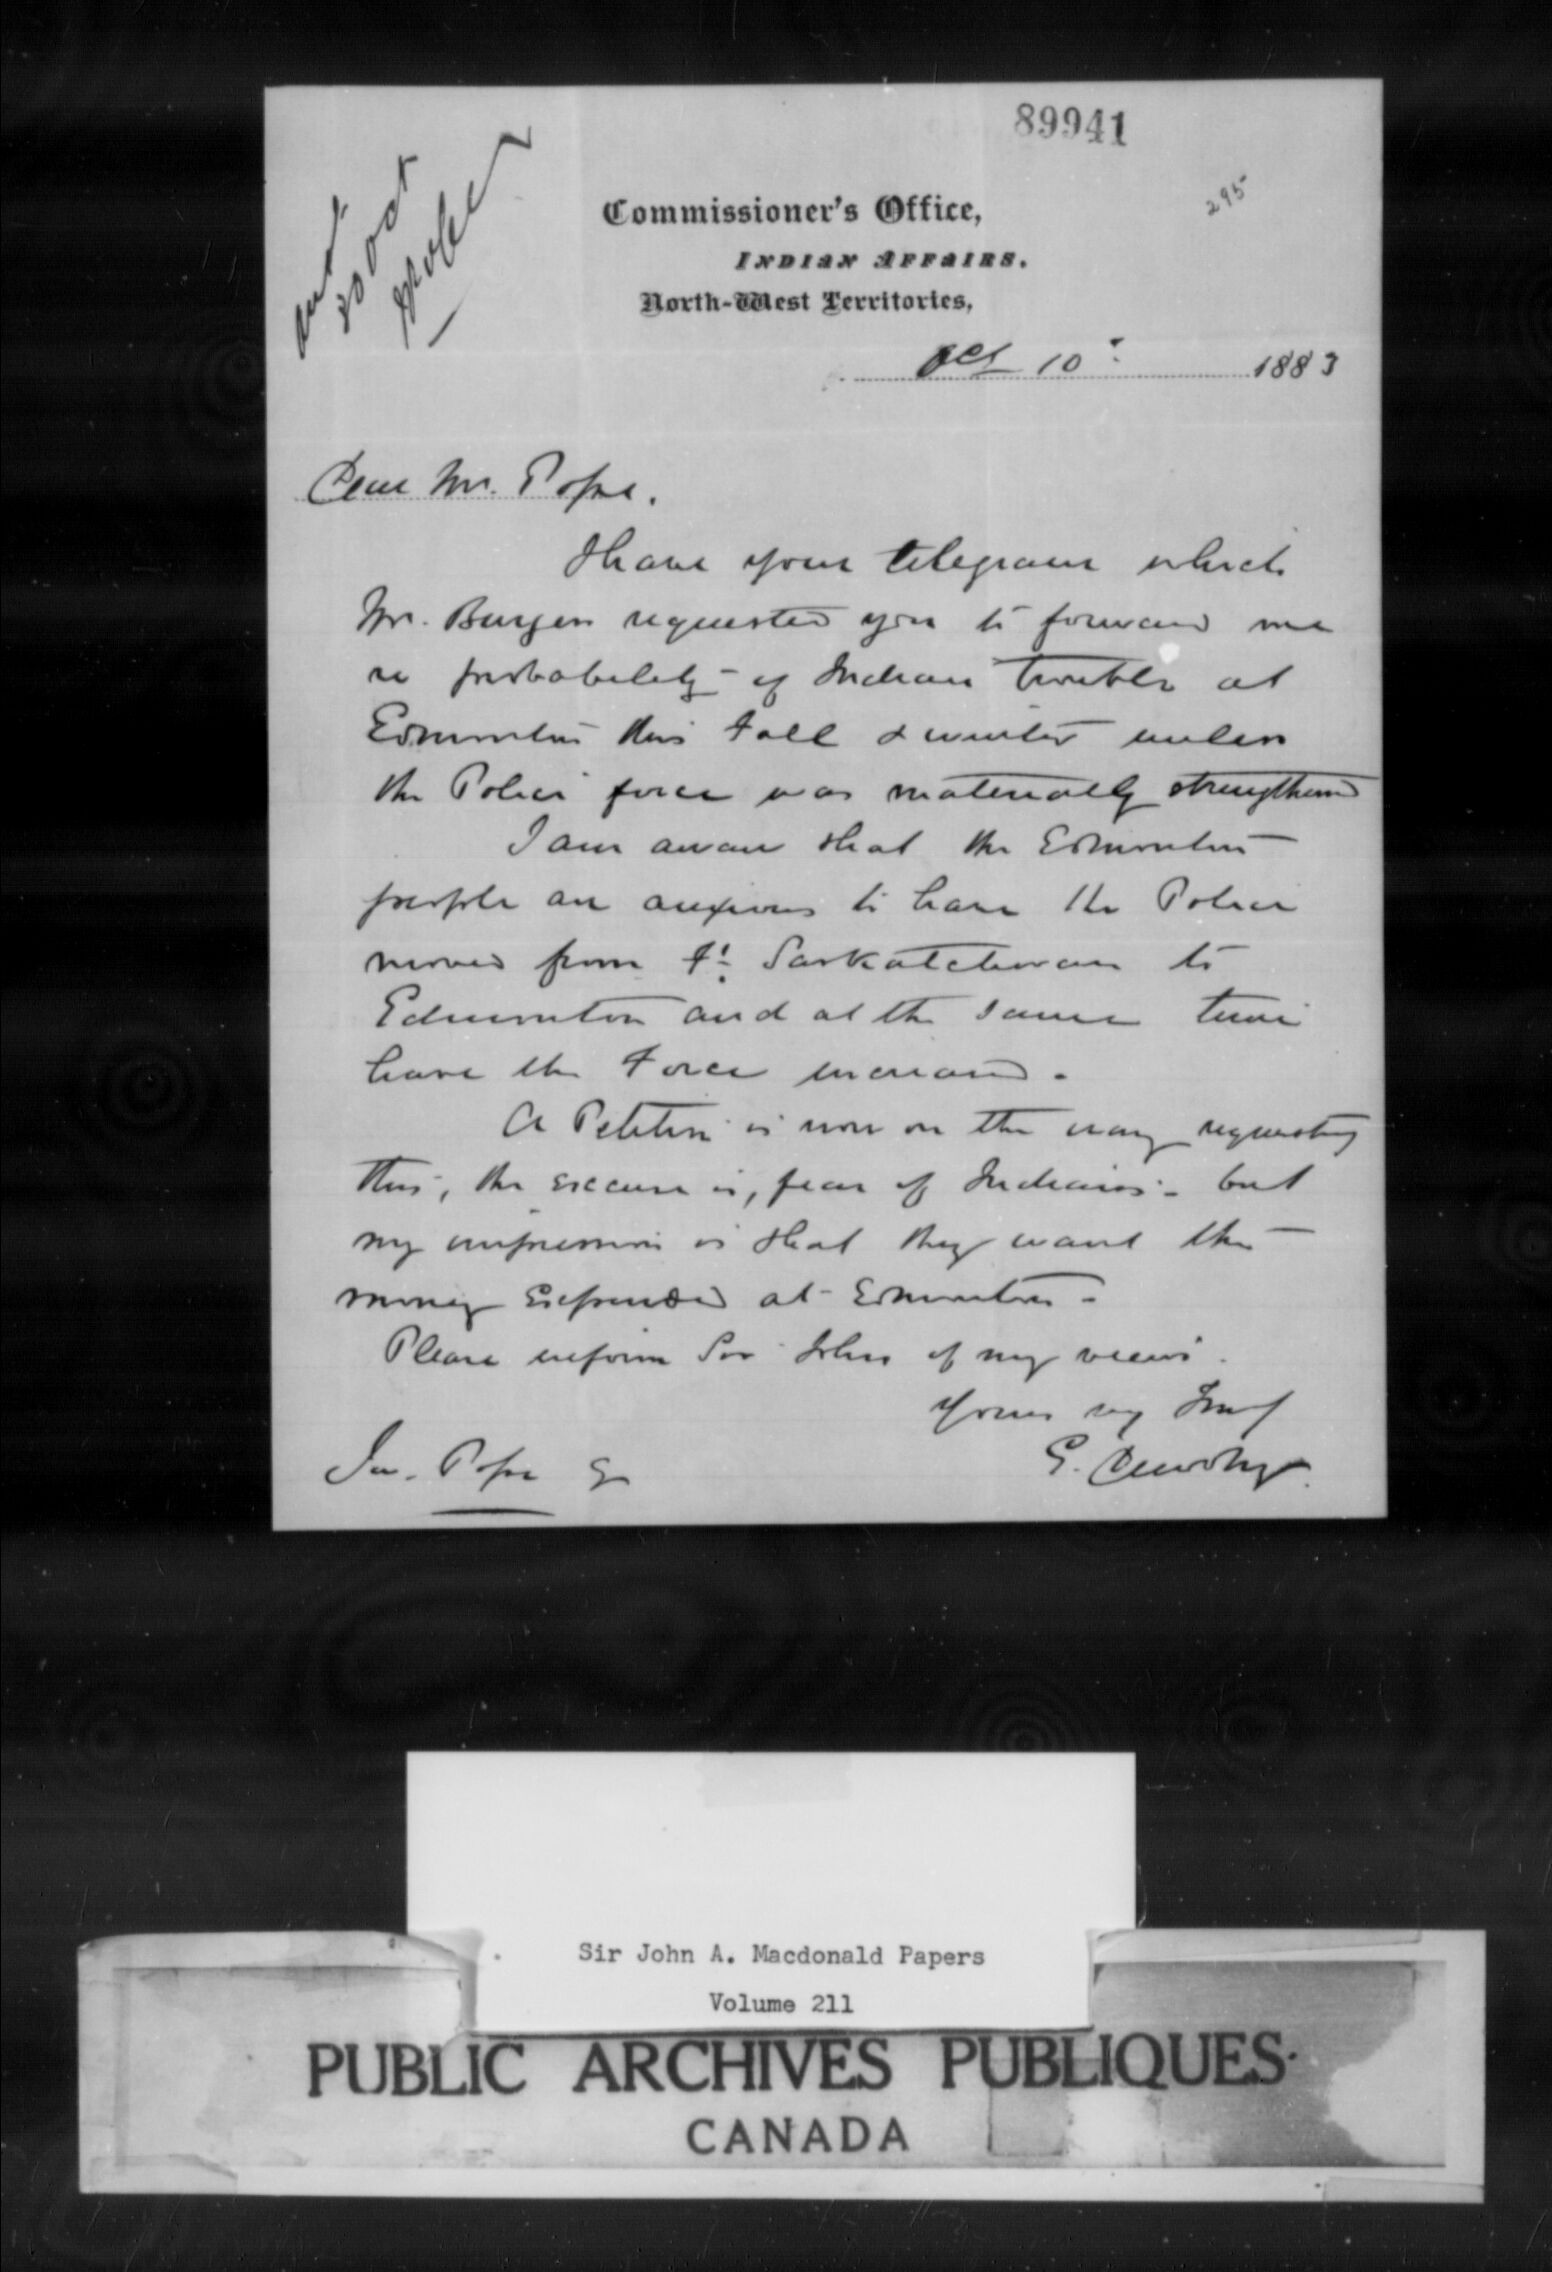 89941
295
Commissioner's Office,
INDIAN AFFAIRS.
North-West Territories,
Oct 10 1883
Dear Mr. Pope.
I have your telegram which
Mr. Burgess requested you to forward me
re probability of Indian trouble at
Edmonton this Fall & winter unless
the Police force was materially strengthened
I am aware that the Edmonton
people are anxious to have the Police
moved from Ft. Saskatchewan to
Edmonton and at the same time
have the Force increased.
A Petition is now on the way requesting
this, the excuse is, fear of Indians - but
my impression is that they want the
money expended at Edmonton -
Please inform Sir John of my views.
Yours very truly
E. Dewdney.
Jos. Pope Esq
Sir John A. Macdonald Papers
Volume 211
PUBLIC ARCHIVES PUBLIQUES
CANADA